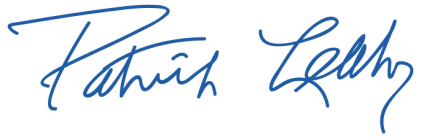 Patrick Leahy